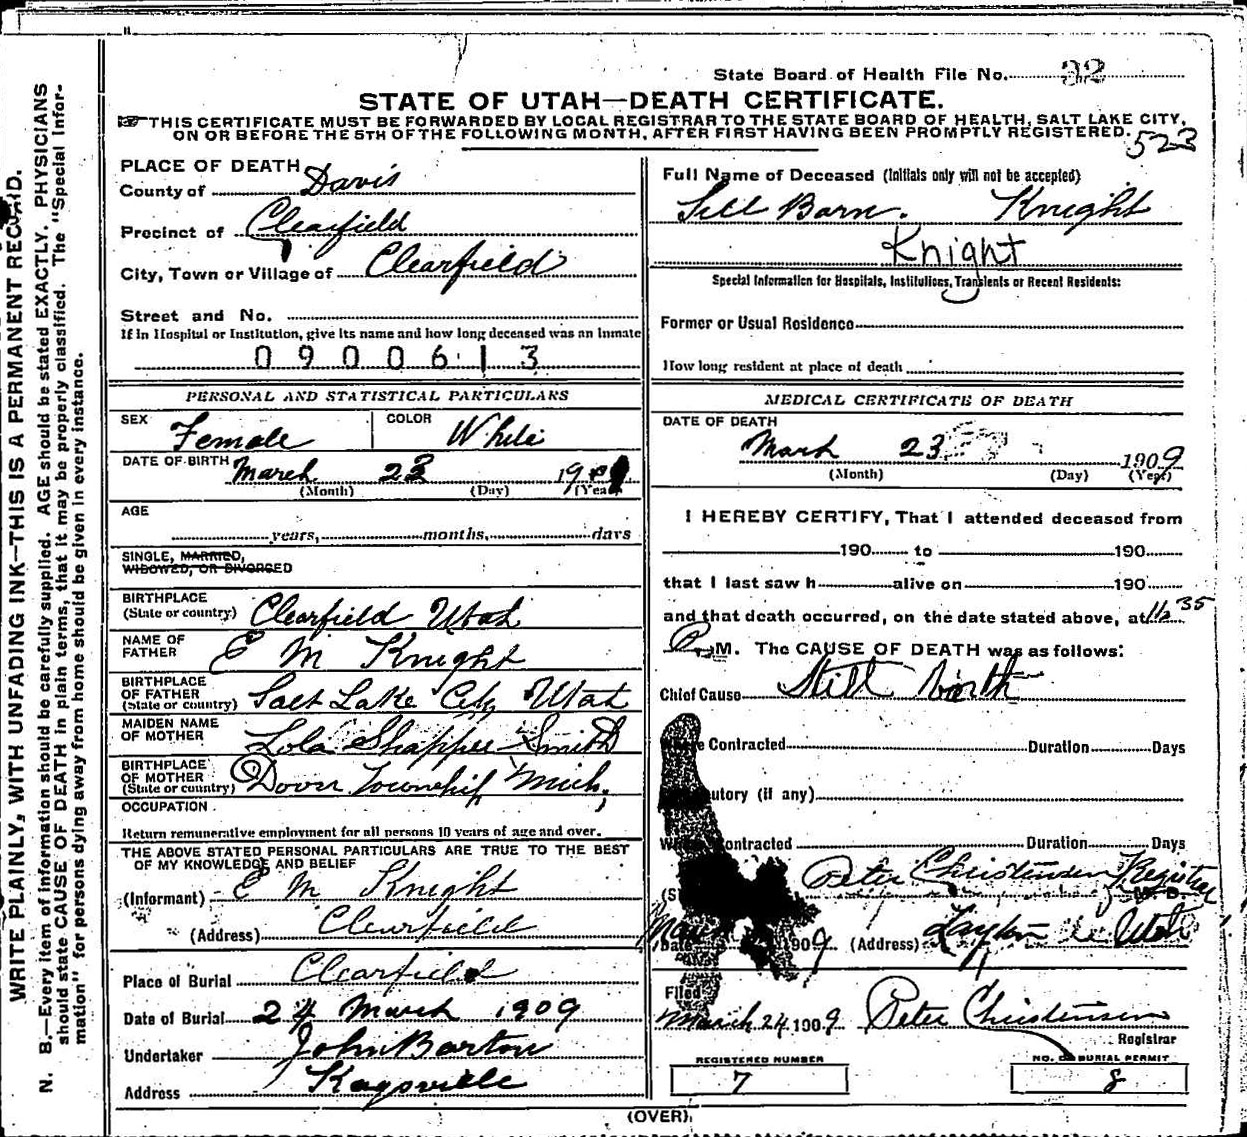 State Board of Health File No. 32
STATE OF UTAH—DEATH CERTIFICATE.
THIS CERTIFICATE MUST BE FORWARDED BY LOCAL REGISTRAR TO THE STATE BOARD OF HEALTH, SALT LAKE CITY,
ON OR BEFORE THE 5TH OF THE FOLLOWING MONTH, AFTER FIRST HAVING BEEN PROMPTLY REGISTERED.
523
PLACE OF DEATH
County of Davis
Precinct of Clearfield
City, Town or Village of Clearfield
Street and No.
If in Hospital or Institution, give its name and how long deceased was an Inmate
0900613
PERSONAL AND STATISTICAL PARTICULARS
SEX Female COLOR White
DATE OF BIRTH March 23 1909
(Month) (Day) (Year)
AGE
years, months, days
SINGLE, MARRIED,
WIDOWED, OR DIVORCED
BIRTHPLACE
(State or country) Clearfield Utah
NAME OF
FATHER E M Knight
BIRTHPLACE
OF FATHER
(State or country) Salt Lake City Utah
MAIDEN NAME
OF MOTHER Lola Smith
BIRTHPLACE
OF MOTHER
(State or country) Dover Township Mich,
OCCUPATION
Return remunerative employment for all persons 10 years of age and over.
THE ABOVE STATED PERSONAL PARTICULARS ARE TRUE TO THE BEST
OF MY KNOWLEDGE AND BELIEF
(Informant) E M Knight
(Address) Clearfield
Place of Burial Clearfield
Date of Burial 24 March 1909
Undertaker John Barton
Address Kaysville
Full Name of Deceased (Initials only will not be accepted)
Still Born. Knight
Knight
Special Information for Hospitals, Institutions, Transients or Recent Residents:
Former or Usual Residence
How long resident at place of death
MEDICAL CERTIFICATE OF DEATH
DATE OF DEATH
March 23 1909
(Month) (Day) (Year)
I HEREBY CERTIFY, That I attended deceased from
190 to 190
that I last saw h alive on 190
and that death occurred, on the date stated above, at 35
P. M. The CAUSE OF DEATH was as follows:
Chief Cause Still birth
Where Contracted Duration Days
(if any)
Contracted Duration Days
Peter Christensen Registrar
M. D.
Date 1909 (Address) Layton Utah
Filed
March 24 1909 Peter Christensen
Registrar
REGISTERED NUMBER
7
NO. OF BURIAL PERMIT
8
(OVER)
WRITE PLAINLY, WITH UNFADING INK—THIS IS A PERMANENT RECORD.
N. B.—Every item of information should be carefully supplied. AGE should be stated EXACTLY. PHYSICIANS
should state CAUSE OF DEATH in plain terms, that it may be properly classified. The "Special Infor-
mation" for persons dying away from home should be given in every instance.